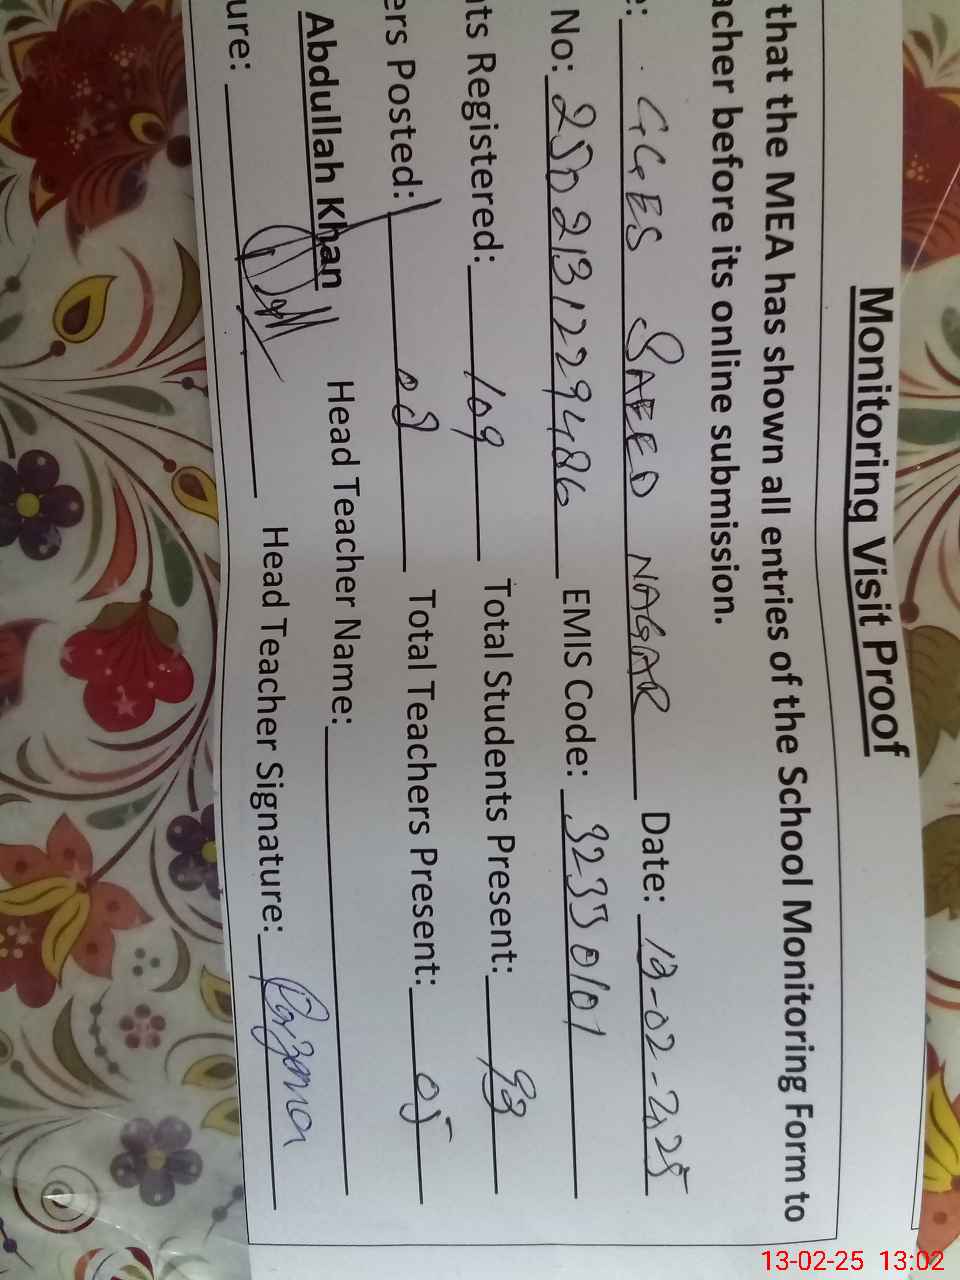 Monitoring Visit Proof
that the MEA has shown all entries of the School Monitoring Form to
acher before its online submission.
e: GGES SAEED NAGAR Date: 13-02-2025
No: 250213122948 6 EMIS Code: 32330101
nts Registered: 109 Total Students Present: 93
ers Posted: 08 Total Teachers Present: 05
Abdullah Khan Head Teacher Name:
ure: Head Teacher Signature:
13-02-25 13:02